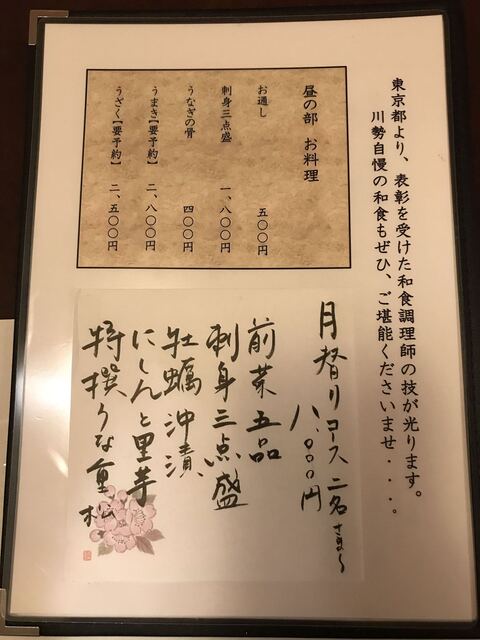 東京都より、表彰を受けた和食調理師の技が光ります。
川勢自慢の和食もぜひ、ご堪能くださいませ・・・。
昼の部 お料理
お通し 五〇〇円
刺身三点盛 一、八〇〇円
うなぎの骨 四〇〇円
うまき【要予約】 二、八〇〇円
うざく【要予約】 二、五〇〇円
月替りコース 二名さま〜
八.〇〇〇円
前菜五品
刺身三点盛
牡蠣沖漬
にしんと里芋
特撰うな重 松